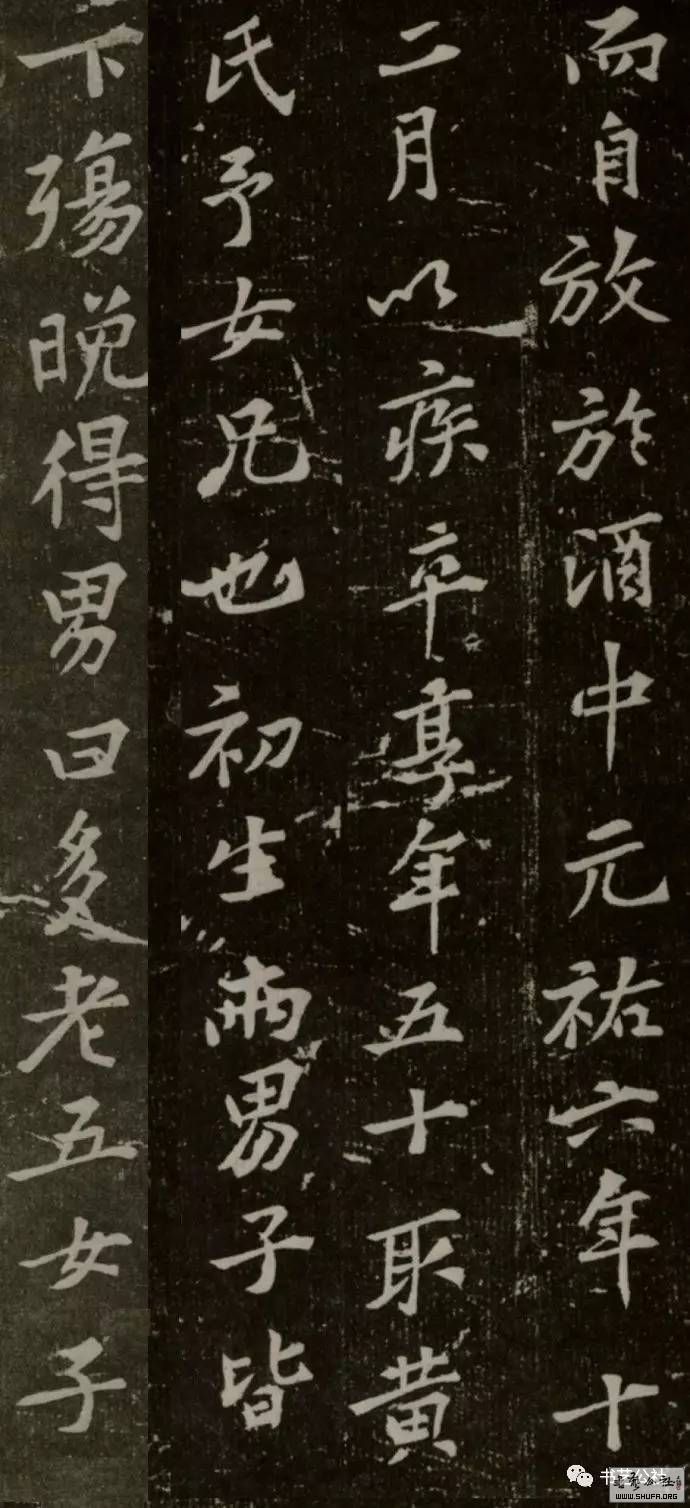 而自放於酒中元祐六年十
二月以疾卒享年五十取黄
氏予女兄也初生兩男子皆
下殤晚得男曰多老五女子
书艺公社
WWW.SHUFA.ORG